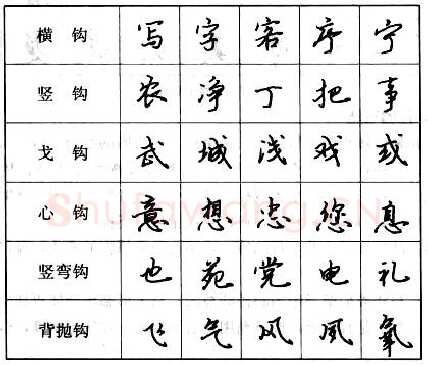 横钩 写 字 客 序 宁
竖钩 农 净 丁 把 事
戈钩 武 城 浅 戏 或
心钩 意 想 忠 您 息
竖弯钩 也 苑 党 电 礼
背抛钩 飞 气 风 凤 氧